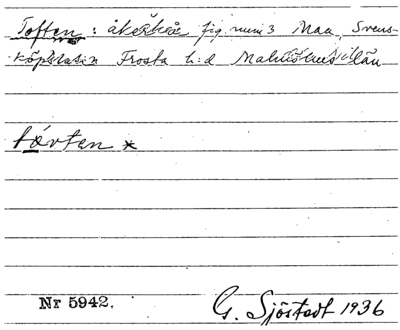 Toften: åkerskä fig. num 3 Maa, Svens-
köp Frosta h:d Malmöhus län
távten *
Nr 5942.
G. Sjöstedt 1936